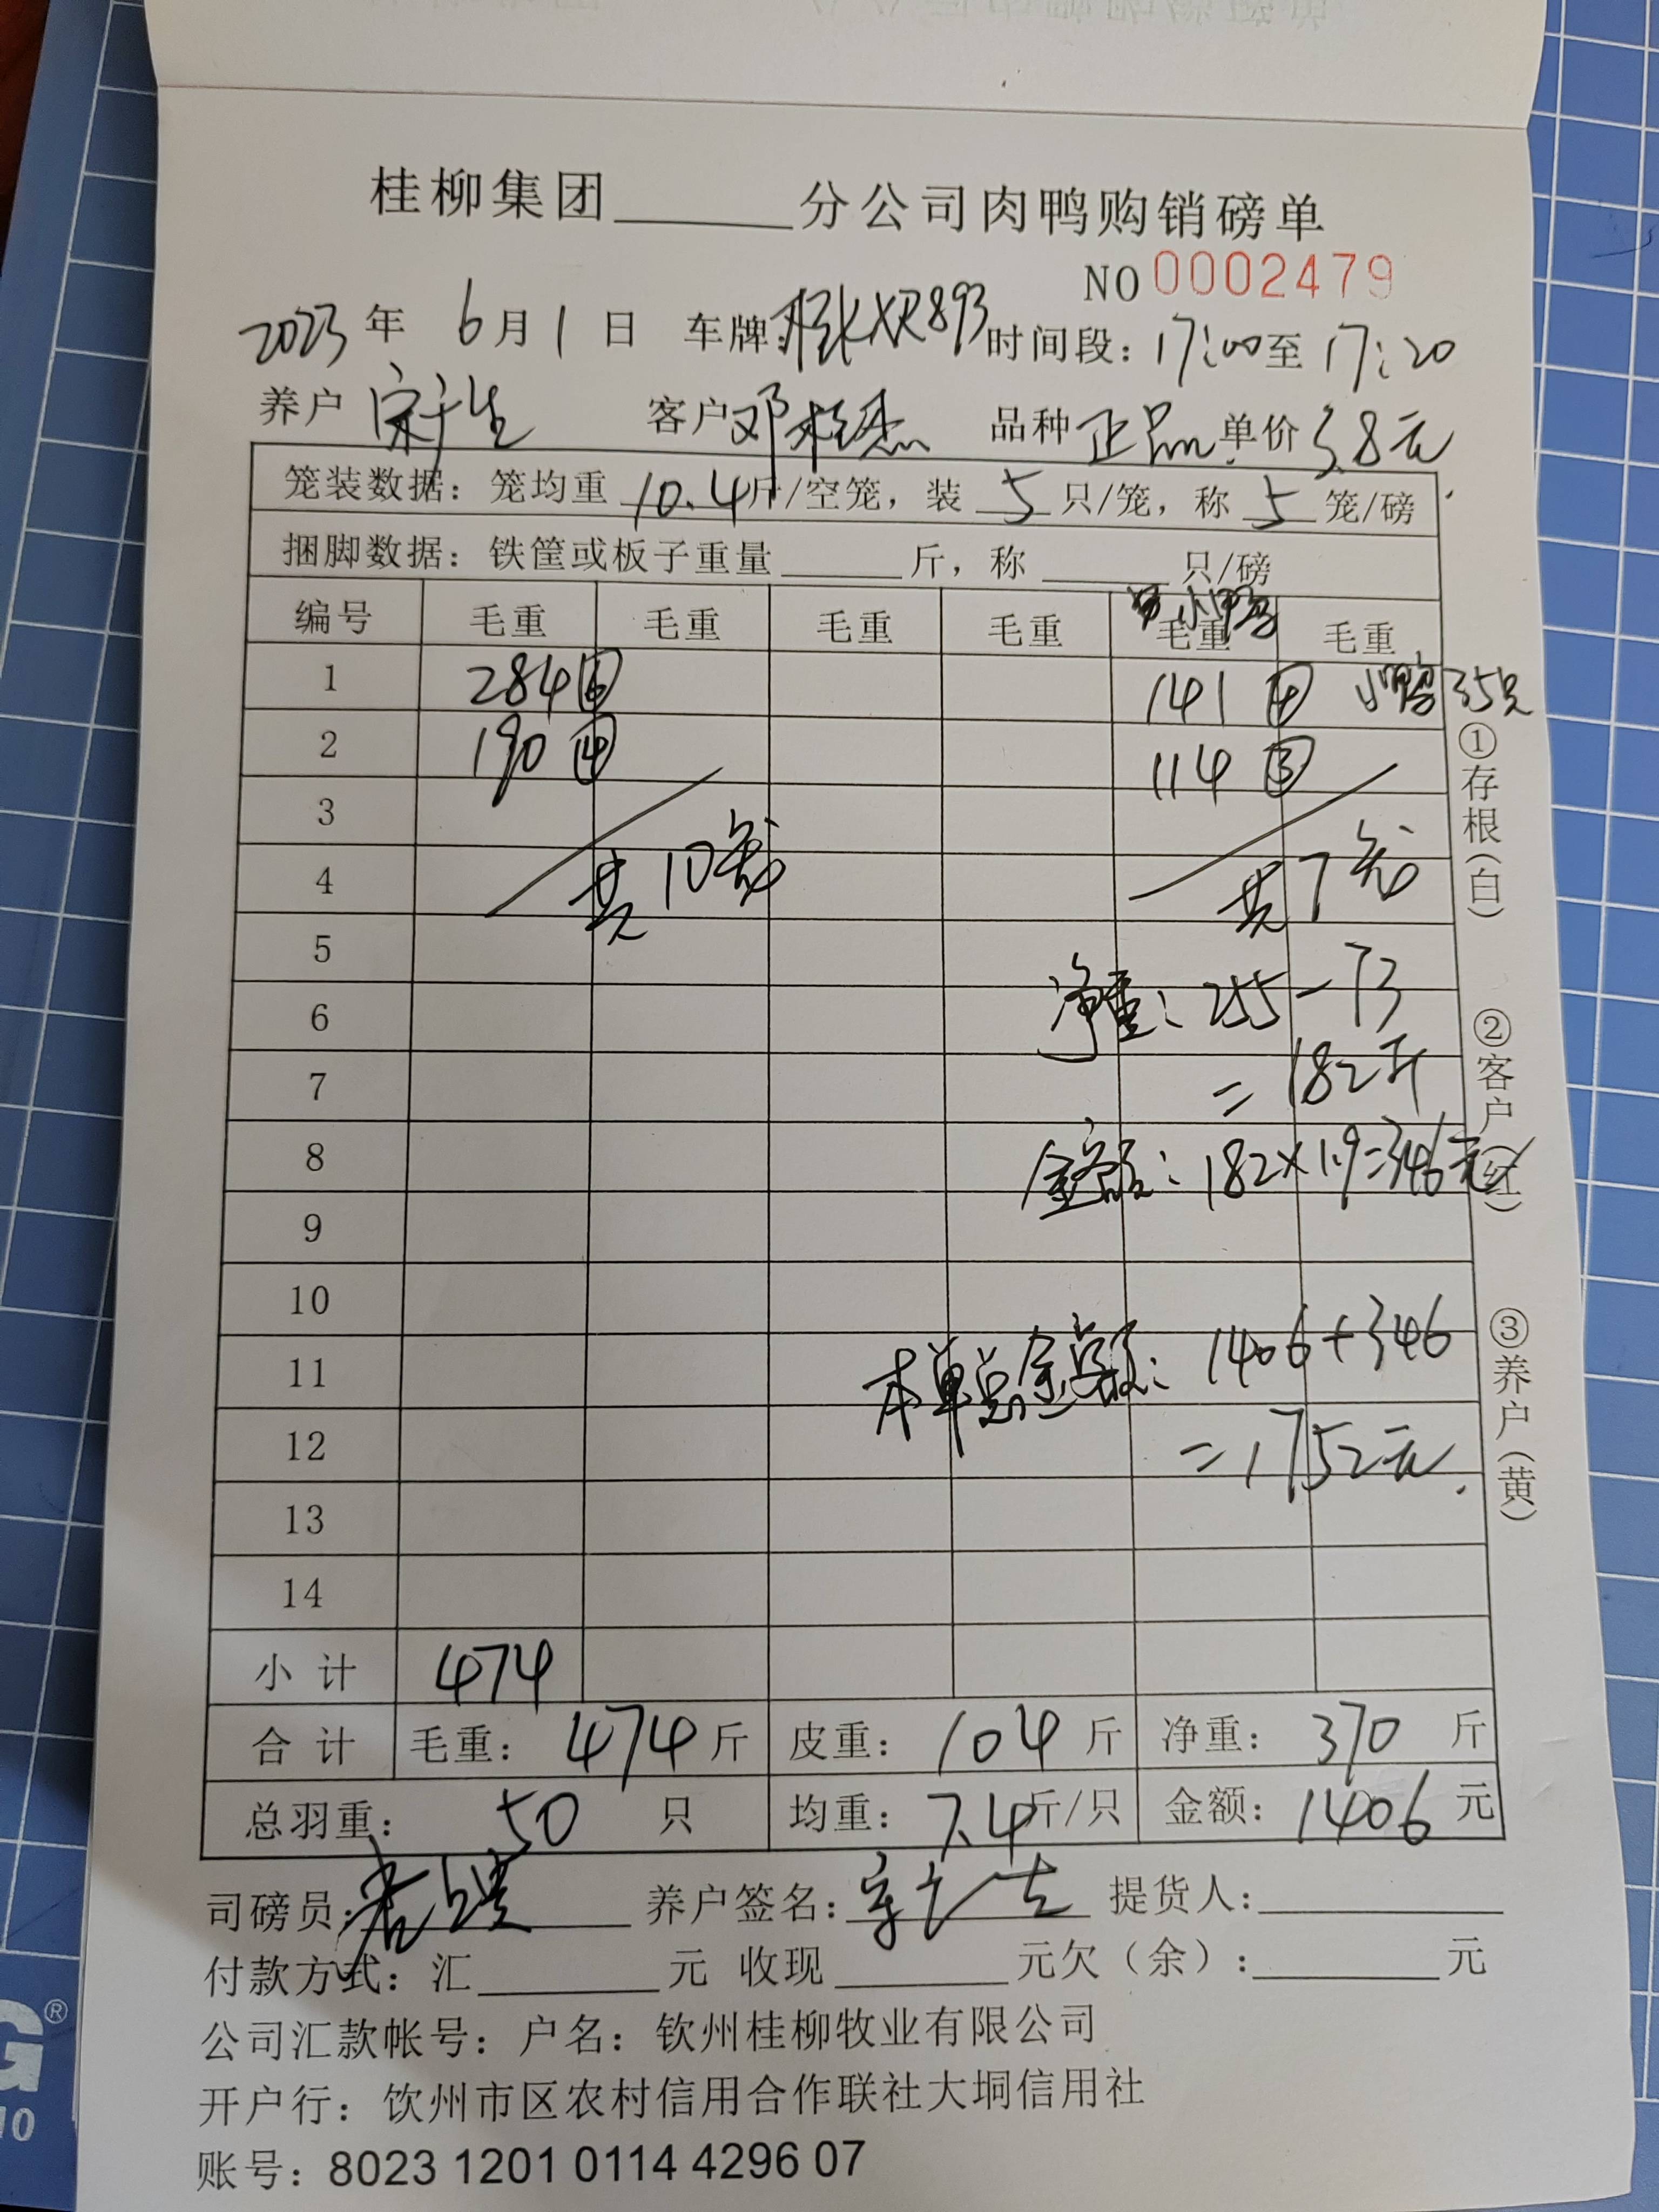 桂柳集团______分公司肉鸭购销磅单
NO 0002479
2023年 6月1日 车牌: XR893 时间段：17:00至17:20
养户 宋广生 客户 邓 杰 品种 正品 单价 3.8元
笼装数据：笼均重 10.4斤/空笼，装 5 只/笼，称 5 笼/磅
捆脚数据：铁筐或板子重量______斤，称______只/磅
小鸭
编号 毛重 毛重 毛重 毛重 毛重 毛重
1 284⑥ 141④ 小鸭35只
2 190④ 114③
3
4 共10笼 共7笼
5
净重：255-73
6
=182斤
7
金额：182×1.9=346元
8
9
10
本单总金额：1406+346
11
=1752元.
12
13
14
小计 474
合计 毛重：474斤 皮重：104斤 净重：370斤
总羽重：50只 均重：7.4斤/只 金额：1406元
司磅员： 养户签名：宋广生 提货人：______
付款方式：汇______元 收现______元欠（余）：______元
公司汇款帐号：户名：钦州桂柳牧业有限公司
开户行：饮州市区农村信用合作联社大垌信用社
账号：8023 1201 0114 4296 07
①存根（白）
②客户（红）
③养户（黄）
G®
10